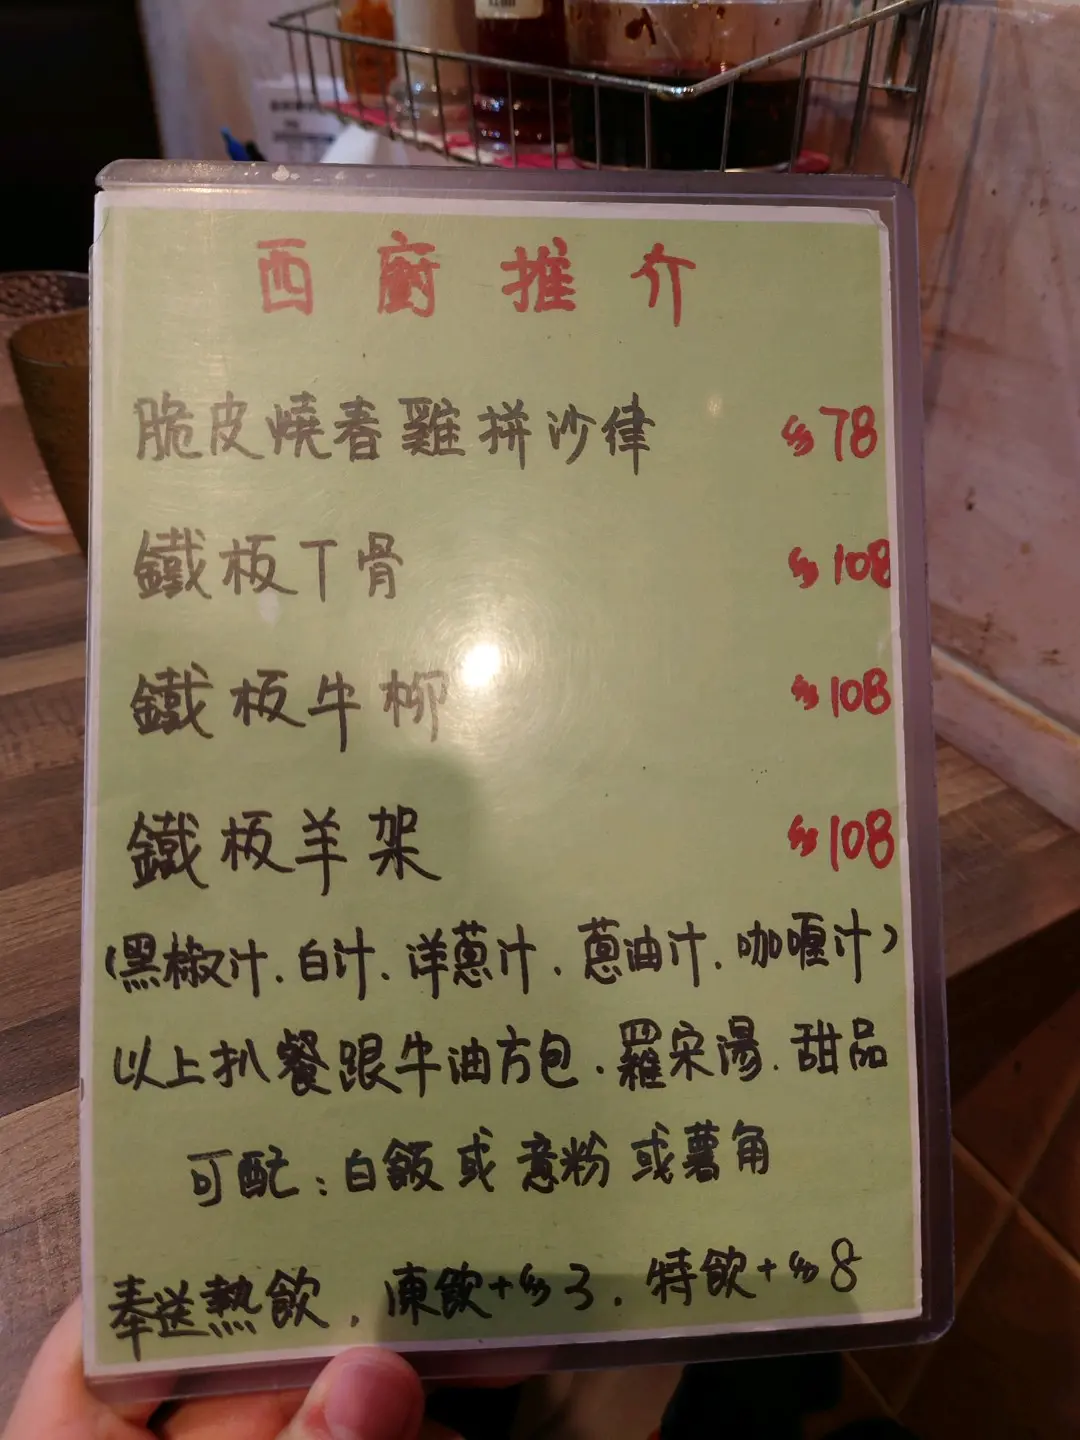 西廚推介
脆皮燒春雞拼沙律 $78
鐵板丁骨 $108
鐵板牛柳 $108
鐵板羊架 $108
(黑椒汁.白汁.洋蔥汁.蔥油汁.咖喱汁)
以上扒餐跟牛油方包.羅宋湯.甜品
可配:白飯或意粉或薯角
奉送熱飲,凍飲+$3.特飲+$8